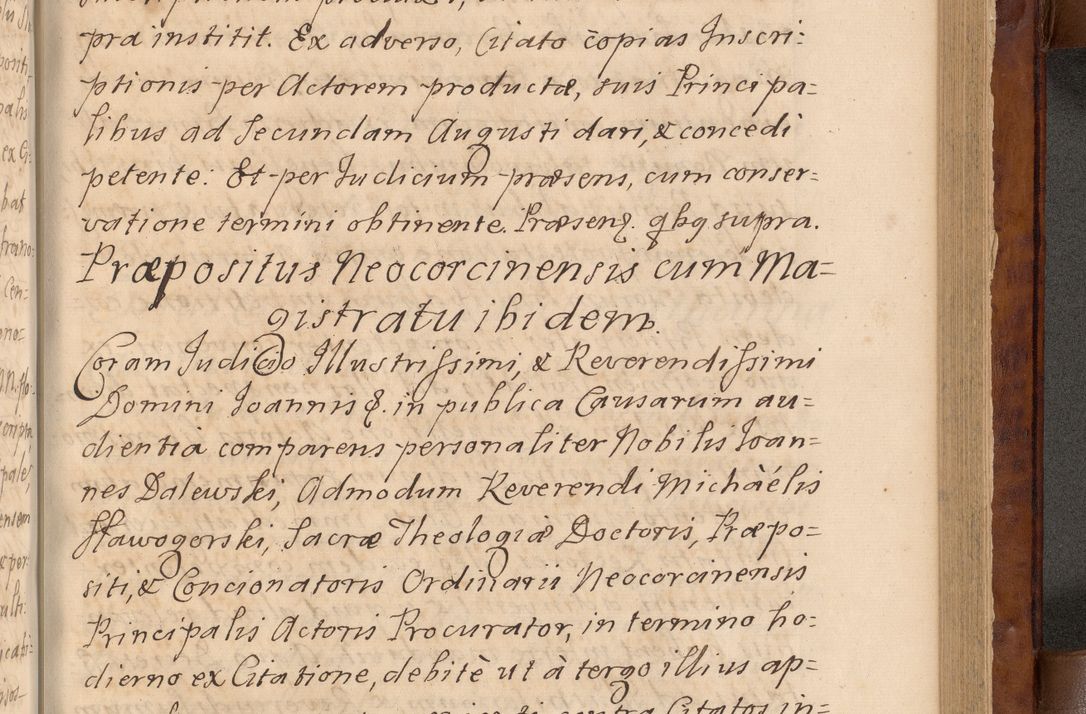 pra institit. Ex adverso, Citato copias Inscri:
ptionis per Actorem productæ, suis Principa=
libus ad Secundam Augusti dari, & concedi
petente: Et per Iudicium præsens, cum conser=
vatione termini obtinente. Præsen. qbq supra.
Præpositus Neocorcinensis cum Ma=
gistratu ibidem.
Coram Iudicio Illustrissimi, & Reverendissimi
Domini Ioannis &. in publica Causarum au=
dientia comparens personaliter Nobilis Ioan=
nes Dalewski, Admodum Reverendi Michàélis
Stawogorski, Sacræ Theologiæ Doctoris, Præpo=
siti, & Concionatoris Ordinarii Neocorcinensis
Principalis Actoris Procurator, in termino ho=
dierno ex Citatione, debitè ut à tergo illius ap=
contra Citatos in=